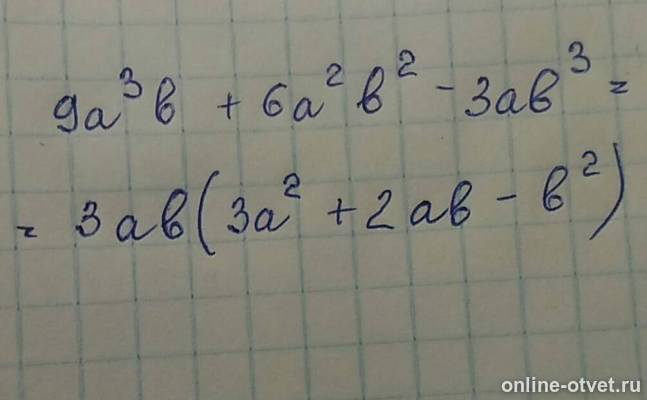 9a³b + 6a²b² - 3ab³ =
= 3ab(3a² + 2ab - b²)
online-otvet.ru